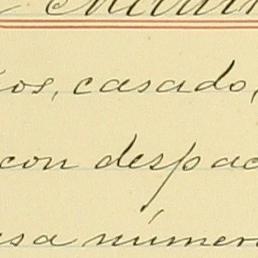 os, casado,
con despac
esa númer